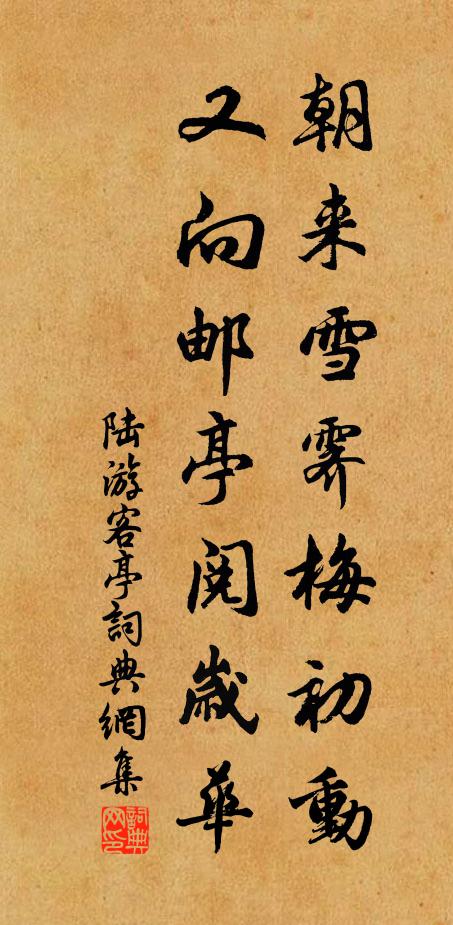 朝来雪霁梅初動
又向邮亭閱歲華
陆游客亭詞典網集
詞典网印